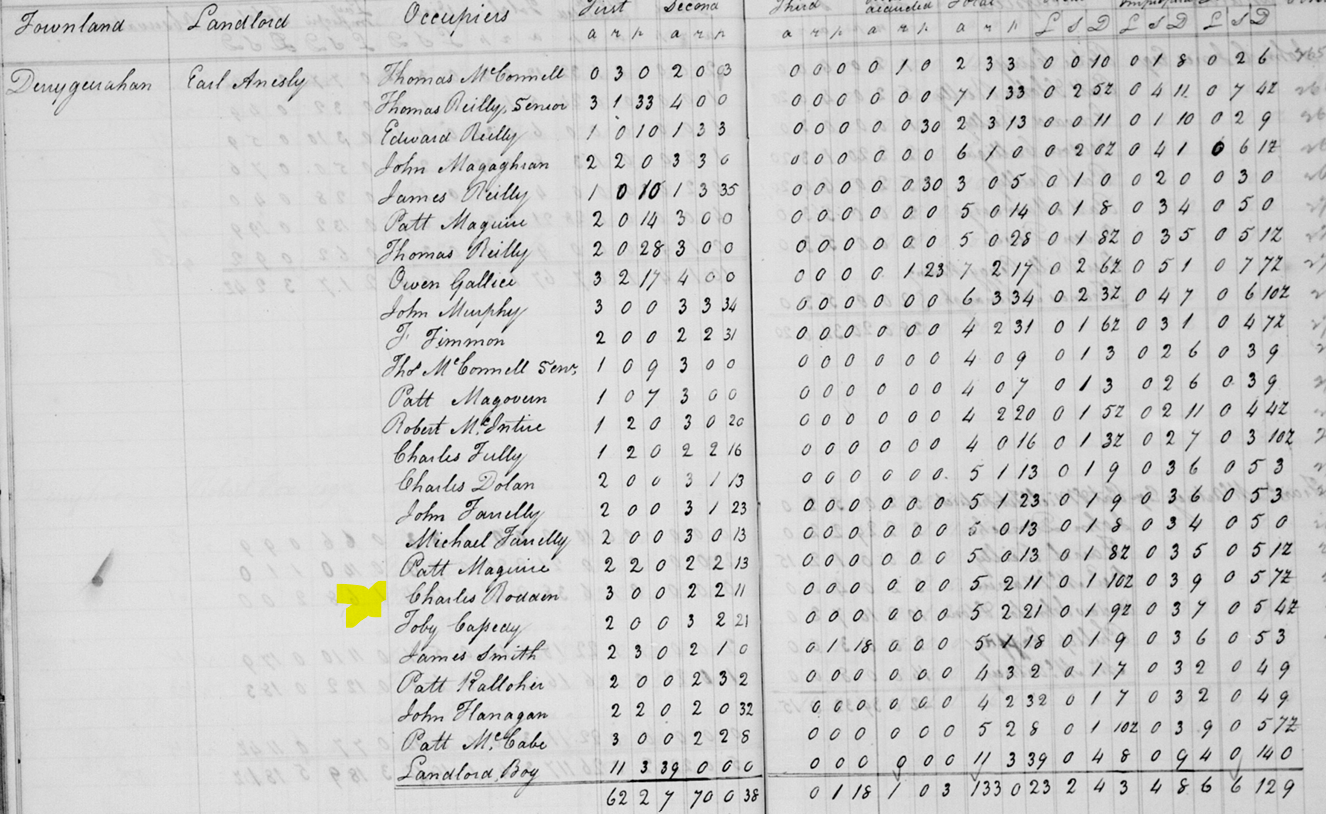 Townland Landlord Occupiers First Second Third Total
a r p a r p a r p a r p a r p £ S D £ S D £ S D
Derrygeeraghan Earl Anesly Thomas McConnell 0 3 0 2 0 3 0 0 0 0 1 0 2 3 3 0 0 10 0 1 8 0 2 6
Thomas Reilly, Senior 3 1 33 4 0 0 0 0 0 0 0 0 7 1 33 0 2 5Z 0 4 11 0 7 4Z
Edward Reilly 1 0 10 1 3 3 0 0 0 0 0 30 2 3 13 0 0 11 0 1 10 0 2 9
John Magaghran 2 2 0 3 3 0 0 0 0 0 0 0 6 1 0 0 2 0Z 0 4 1 0 6 1Z
James Reilly 1 0 10 1 3 35 0 0 0 0 0 30 3 0 5 0 1 0 0 2 0 0 3 0
Patt Maguire 2 0 14 3 0 0 0 0 0 0 0 0 5 0 14 0 1 8 0 3 4 0 5 0
Thomas Reilly 2 0 28 3 0 0 0 0 0 0 0 0 5 0 28 0 1 8Z 0 3 5 0 5 1Z
Owen Gallice 3 2 17 4 0 0 0 0 0 0 1 23 7 2 17 0 2 6Z 0 5 1 0 7 7Z
John Murphy 3 0 0 3 3 34 0 0 0 0 0 0 6 3 34 0 2 3Z 0 4 7 0 6 10Z
T. Timmon 2 0 0 2 2 31 0 0 0 0 0 0 4 2 31 0 1 6Z 0 3 1 0 4 7Z
Thos McConnell Senr. 1 0 9 3 0 0 0 0 0 0 0 0 4 0 9 0 1 3 0 2 6 0 3 9
Patt Magovern 1 0 7 3 0 0 0 0 0 0 0 0 4 0 7 0 1 3 0 2 6 0 3 9
Robert McIntire 1 2 0 3 0 20 0 0 0 0 0 0 4 2 20 0 1 5Z 0 2 11 0 4 4Z
Charles Tully 1 2 0 2 2 16 0 0 0 0 0 0 4 0 16 0 1 3Z 0 2 7 0 3 10Z
Charles Dolan 2 0 0 3 1 13 0 0 0 0 0 0 5 1 13 0 1 9 0 3 6 0 5 3
John Farrelly 2 0 0 3 1 23 0 0 0 0 0 0 5 1 23 0 1 9 0 3 6 0 5 3
Michael Farrelly 2 0 0 3 0 13 0 0 0 0 0 0 5 0 13 0 1 8 0 3 4 0 5 0
Patt Maguire 2 2 0 2 2 13 0 0 0 0 0 0 5 0 13 0 1 8Z 0 3 5 0 5 1Z
Charles Rodden 3 0 0 2 2 11 0 0 0 0 0 0 5 2 11 0 1 10Z 0 3 9 0 5 7Z
Toby Capedy 2 0 0 3 2 21 0 0 0 0 0 0 5 2 21 0 1 9Z 0 3 7 0 5 4Z
James Smith 2 3 0 2 1 0 0 1 18 0 0 0 5 1 18 0 1 9 0 3 6 0 5 3
Patt Kalloher 2 0 0 2 3 2 0 0 0 0 0 0 4 3 2 0 1 7 0 3 2 0 4 9
John Flanagan 2 2 0 2 0 32 0 0 0 0 0 0 4 2 32 0 1 7 0 3 2 0 4 9
Patt McCabe 3 0 0 2 2 8 0 0 0 0 0 0 5 2 8 0 1 10Z 0 3 9 0 5 7Z
Landlord Bog 11 3 39 0 0 0 0 0 0 0 0 0 11 3 39 0 4 8 0 9 4 0 14 0
62 2 7 70 0 38 0 1 18 1 0 3 133 0 23 2 4 3 4 8 6 6 12 9